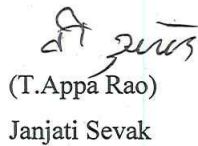 (T.Appa Rao)
Janjati Sevak